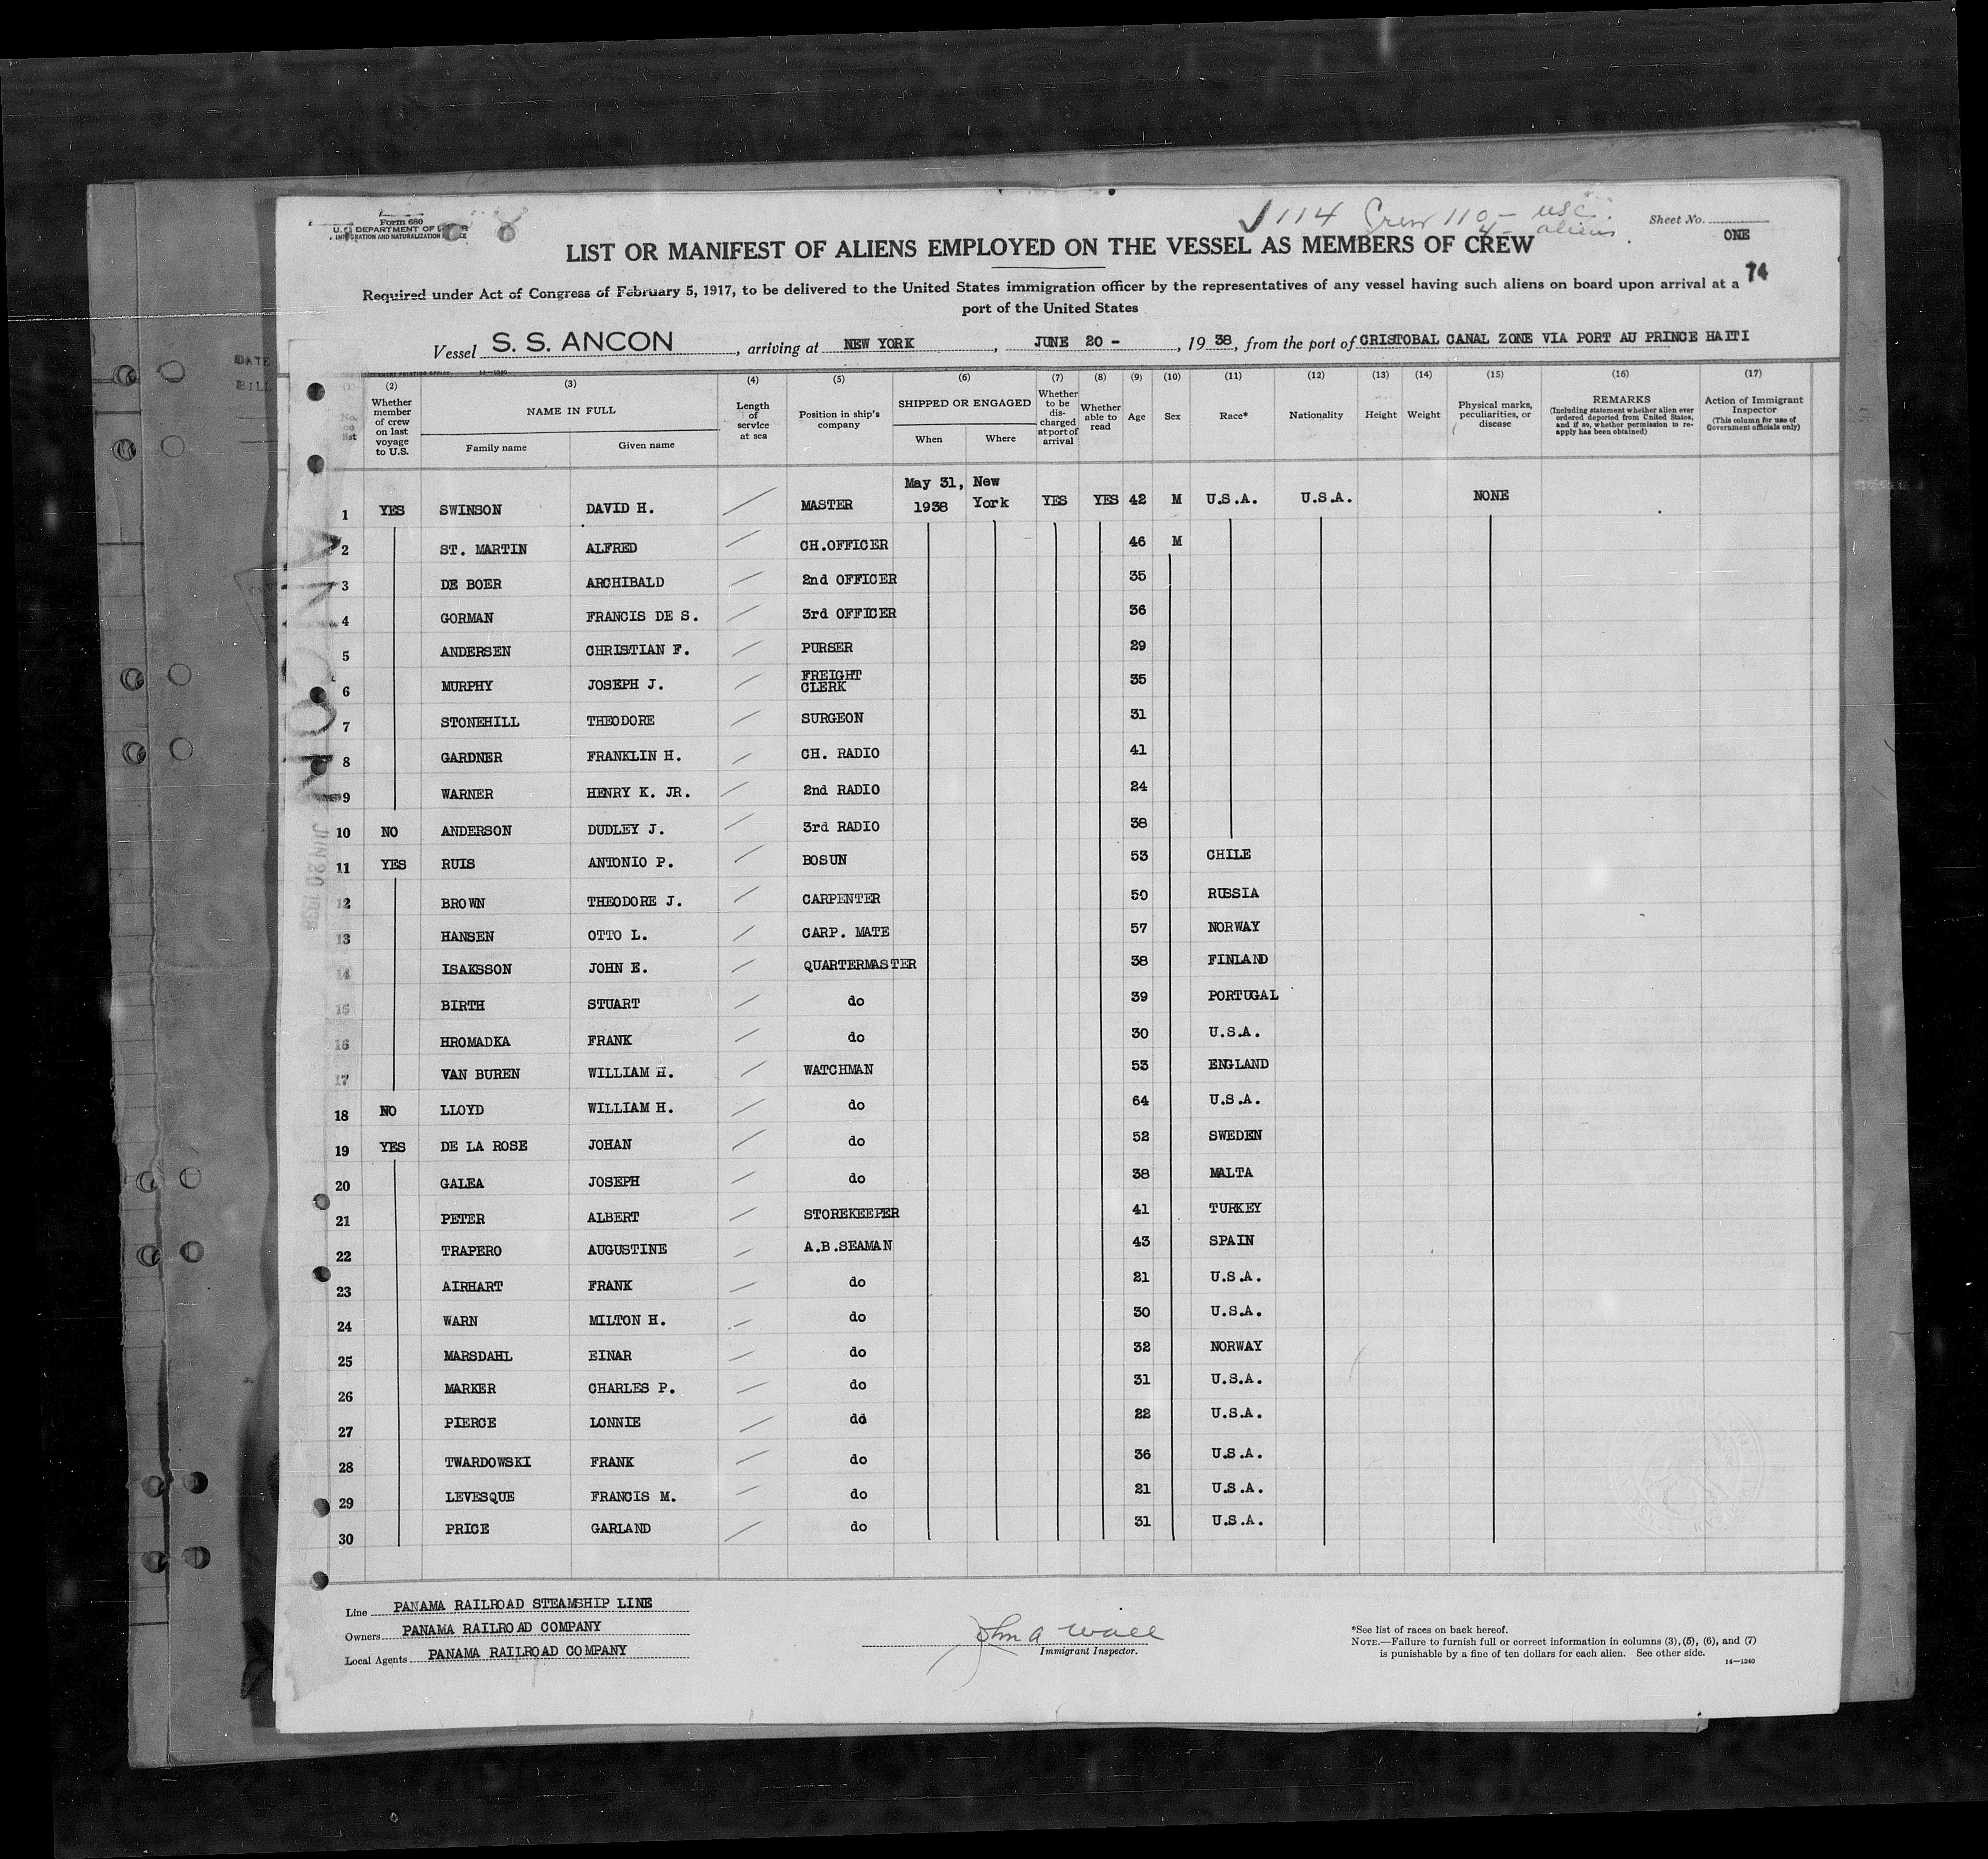 Form 680
U. S. DEPARTMENT OF LABOR
IMMIGRATION AND NATURALIZATION
114 Crew 110 - USC.
4 - aliens
Sheet No. ONE
LIST OR MANIFEST OF ALIENS EMPLOYED ON THE VESSEL AS MEMBERS OF CREW
74
Required under Act of Congress of February 5, 1917, to be delivered to the United States immigration officer by the representatives of any vessel having such aliens on board upon arrival at a
port of the United States
Vessel S. S. ANCON, arriving at NEW YORK, JUNE 20 -, 1938, from the port of CRISTOBAL CANAL ZONE VIA PORT AU PRINCE HAITI
DATE
BILL
14—1240
(1) (2) (3) (4) (5) (6) (7) (8) (9) (10) (11) (12) (13) (14) (15) (16) (17)
No. on list
Whether member of crew on last voyage to U.S.
NAME IN FULL
Family name Given name
Length of service at sea
Position in ship's company
SHIPPED OR ENGAGED
When Where
Whether to be discharged at port of arrival
Whether able to read
Age
Sex
Race*
Nationality
Height
Weight
Physical marks, peculiarities, or disease
REMARKS
(Including statement whether alien ever ordered deported from United States, and if so, whether permission to re-apply has been obtained)
Action of Immigrant Inspector
(This column for use of Government officials only)
1 YES SWINSON DAVID H. MASTER May 31, 1938 New York YES YES 42 M U.S.A. U.S.A. NONE
2 ST. MARTIN ALFRED CH.OFFICER 46 M
3 DE BOER ARCHIBALD 2nd OFFICER 35
4 GORMAN FRANCIS DE S. 3rd OFFICER 36
5 ANDERSEN CHRISTIAN F. PURSER 29
6 MURPHY JOSEPH J. FREIGHT CLERK 35
7 STONEHILL THEODORE SURGEON 31
8 GARDNER FRANKLIN H. CH. RADIO 41
9 WARNER HENRY K. JR. 2nd RADIO 24
10 NO ANDERSON DUDLEY J. 3rd RADIO 38
11 YES RUIS ANTONIO P. BOSUN 53 CHILE
12 BROWN THEODORE J. CARPENTER 50 RUSSIA
13 HANSEN OTTO L. CARP. MATE 57 NORWAY
14 ISAKSSON JOHN E. QUARTERMASTER 38 FINLAND
15 BIRTH STUART do 39 PORTUGAL
16 HROMADKA FRANK do 30 U.S.A.
17 VAN BUREN WILLIAM H. WATCHMAN 53 ENGLAND
18 NO LLOYD WILLIAM H. do 64 U.S.A.
19 YES DE LA ROSE JOHAN do 52 SWEDEN
20 GALEA JOSEPH do 38 MALTA
21 PETER ALBERT STOREKEEPER 41 TURKEY
22 TRAPERO AUGUSTINE A.B.SEAMAN 43 SPAIN
23 AIRHART FRANK do 21 U.S.A.
24 WARN MILTON H. do 30 U.S.A.
25 MARSDAHL EINAR do 32 NORWAY
26 MARKER CHARLES P. do 31 U.S.A.
27 PIERCE LONNIE dd 22 U.S.A.
28 TWARDOWSKI FRANK do 36 U.S.A.
29 LEVESQUE FRANCIS M. do 21 U.S.A.
30 PRICE GARLAND do 31 U.S.A.
ANCON
JUN 20 1938
Line PANAMA RAILROAD STEAMSHIP LINE
Owners PANAMA RAILROAD COMPANY
Local Agents PANAMA RAILROAD COMPANY
John A Wall
Immigrant Inspector.
*See list of races on back hereof.
NOTE.—Failure to furnish full or correct information in columns (3), (5), (6), and (7)
is punishable by a fine of ten dollars for each alien. See other side.
14—1240